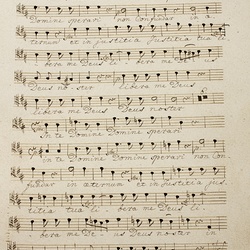 Domine speravi non confundar in ae
ternum et in justitia justitia tua li
bera me Deus li bera me De us
Deus no ster libera me Deus
libera me Deus Deus noster
In te Domine Domine speravi
in te Domine Domine speravi non con
fundar in aeternum et in justitia jus
titia tua bera me Deus li
bera me De us Deus noster in